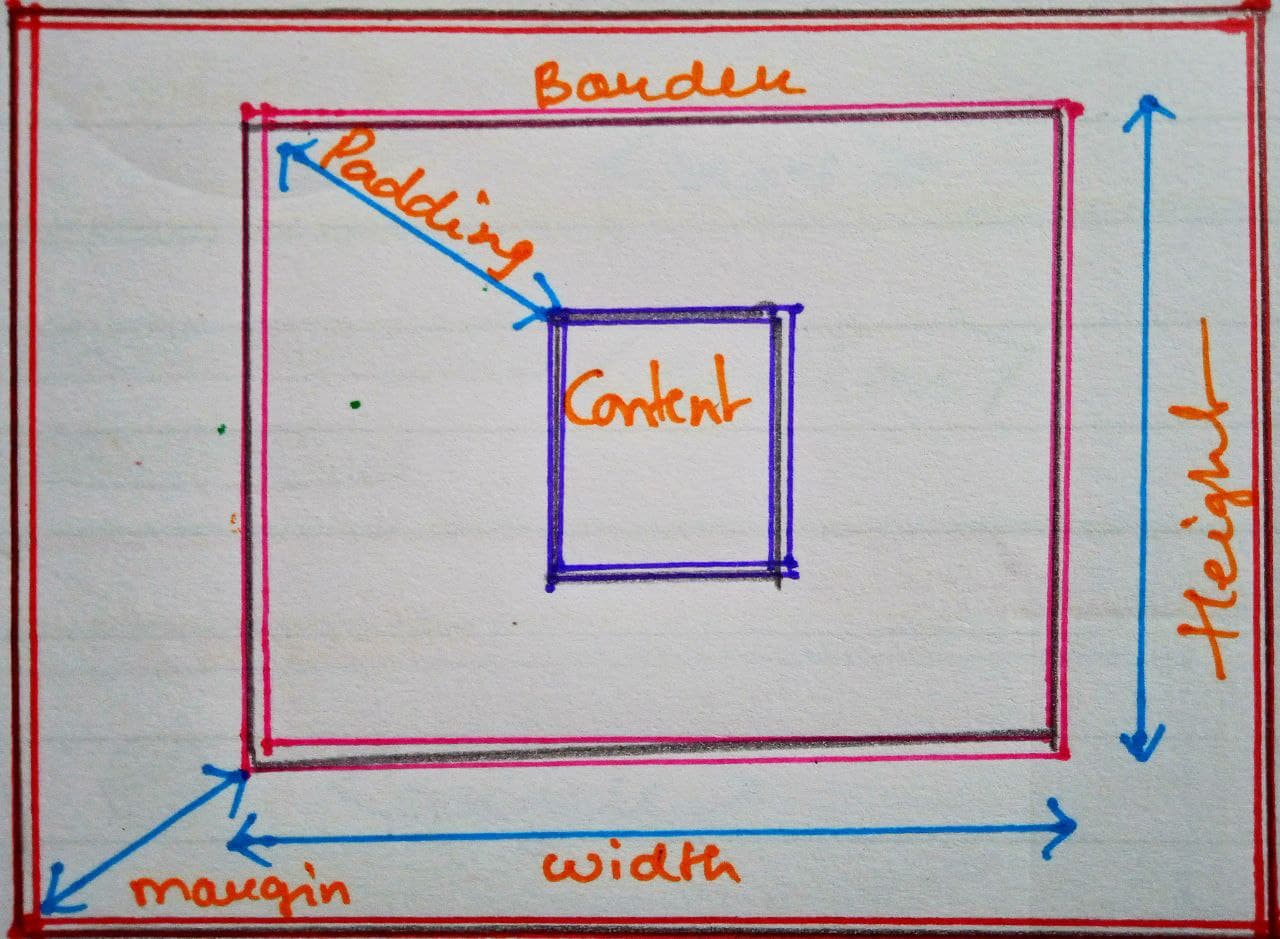 Border
Padding
Content
Height
width
margin